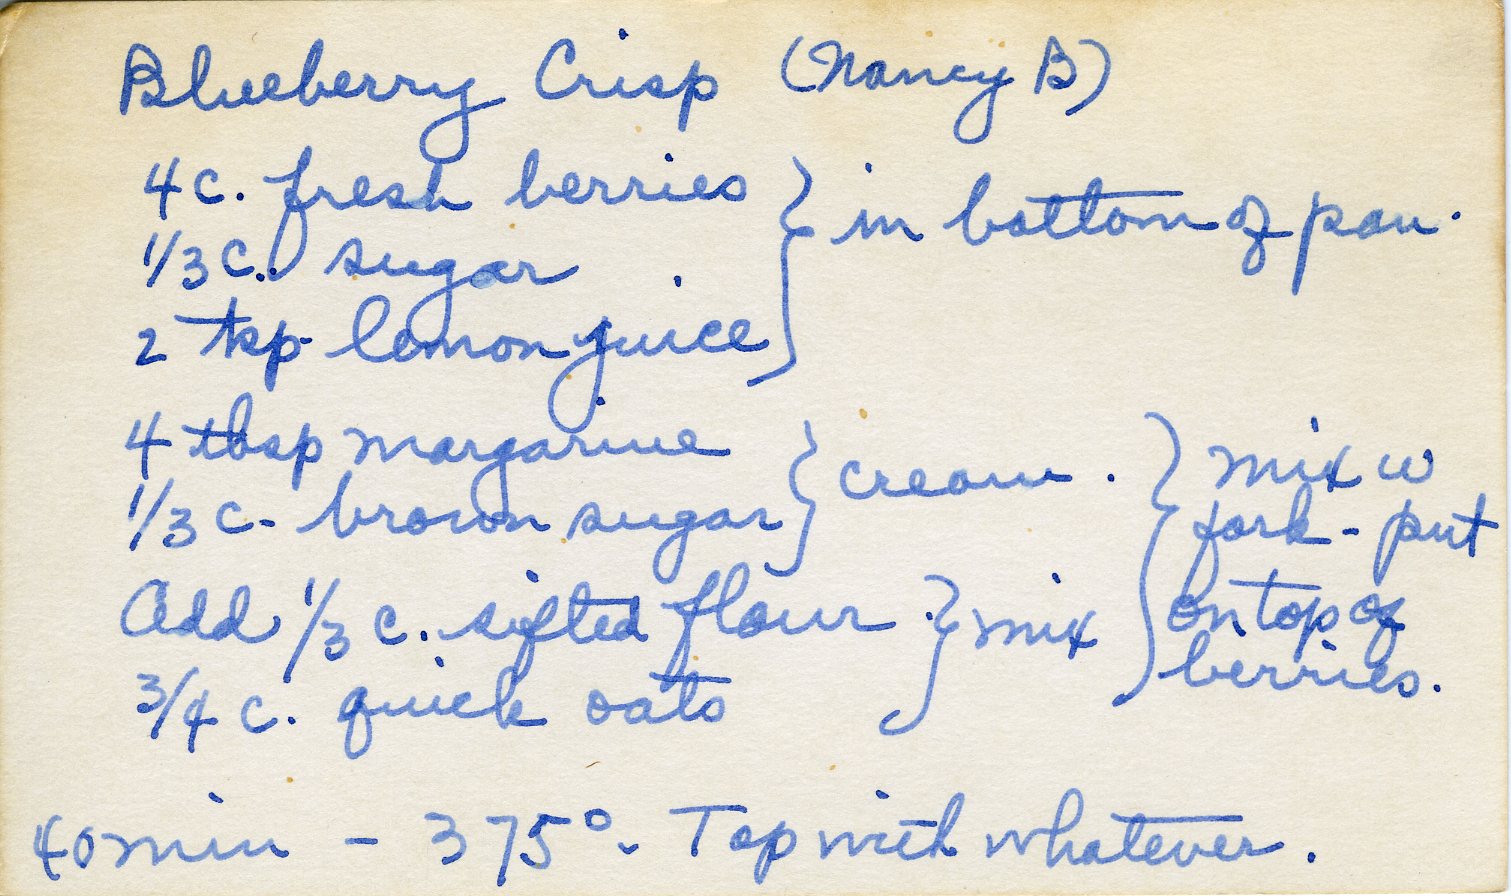 Blueberry Crisp (Nancy B)
4 c. fresh berries } in bottom of pan.
1/3 c. sugar
2 tsp. lemon juice
4 tbsp margarine } cream. } mix w
1/3 c. brown sugar fork - put
Add 1/3 c. sifted flour } mix on top of
3/4 c. quick oats berries.
40 min - 375°. Top with whatever.